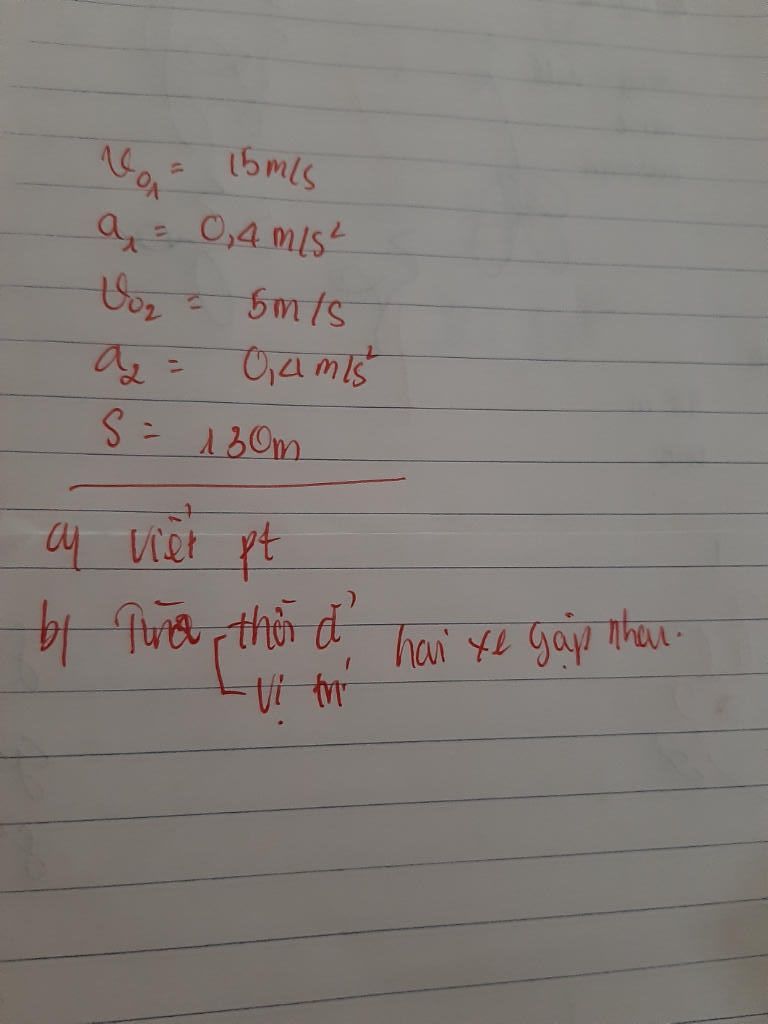 v₀₁ = 15m/s
a₁ = 0,4 m/s²
v₀₂ = 5m/s
a₂ = 0,4 m/s²
S = 130m
a) viết pt
b) Tìm thời đ' hai xe gặp nhau.
vị trí